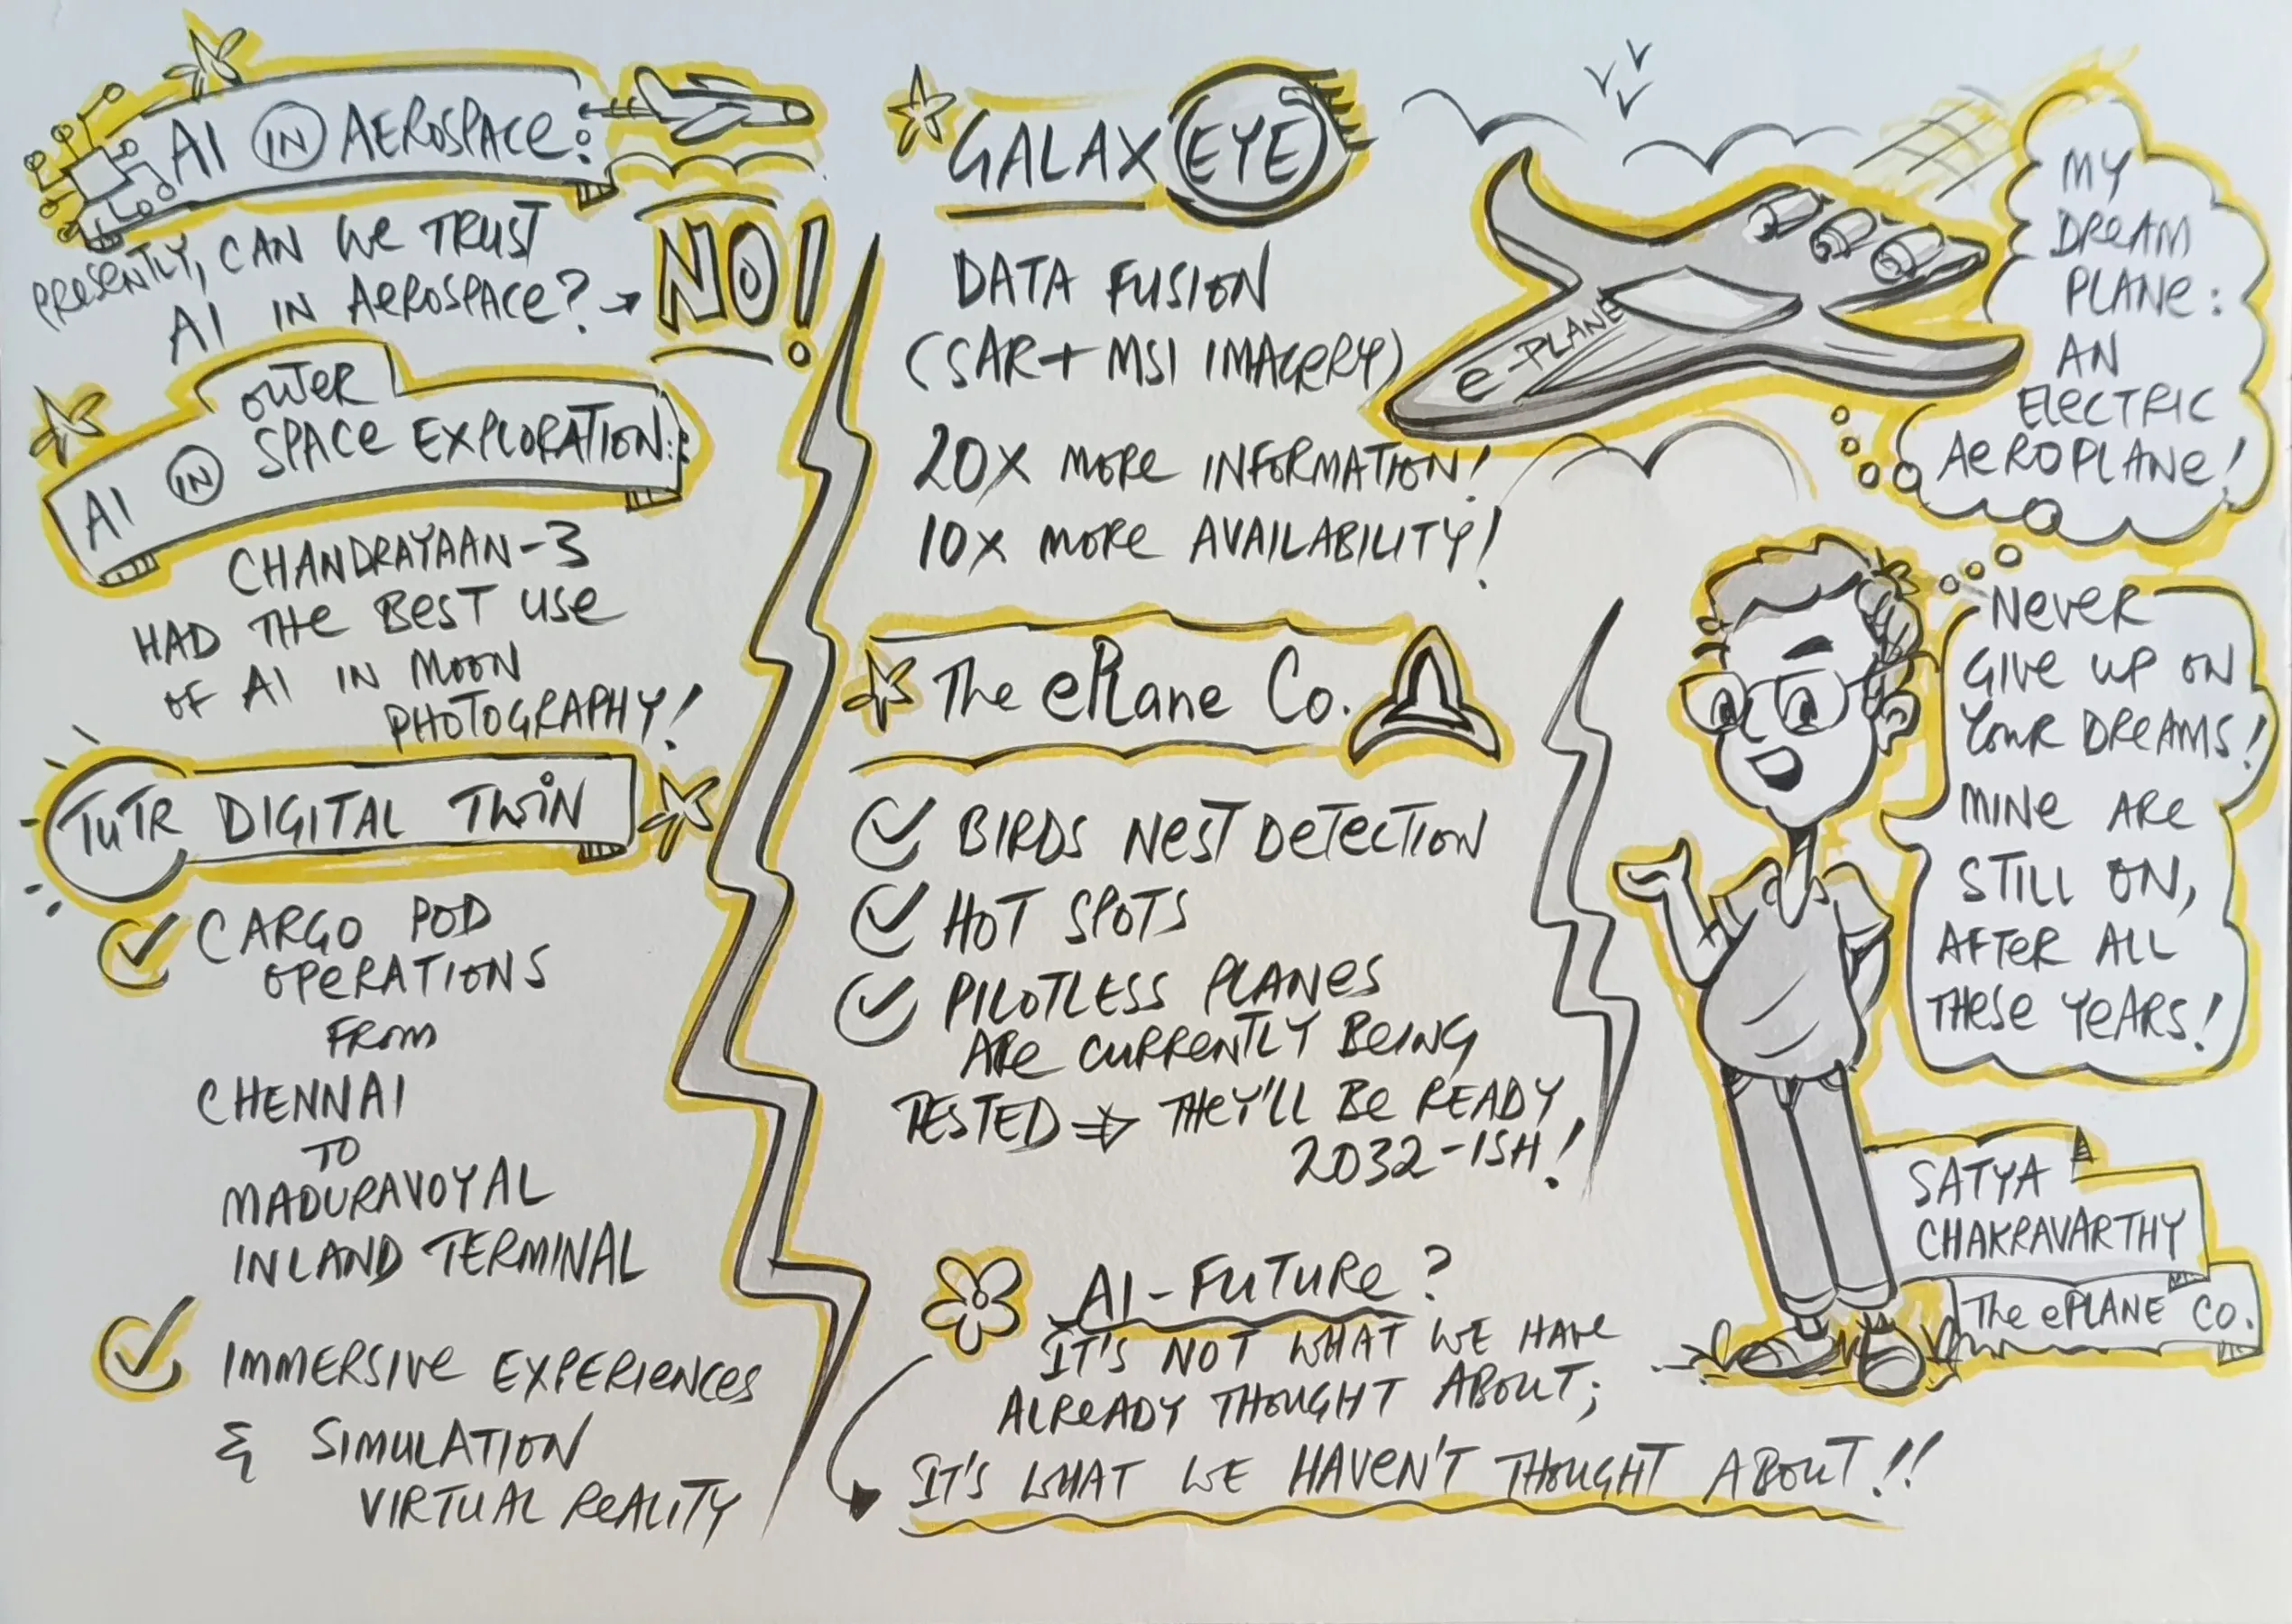 AI IN AEROSPACE:
PRESENTLY, CAN WE TRUST
AI IN AEROSPACE? → NO!
AI IN OUTER
SPACE EXPLORATION:
CHANDRAYAAN-3
HAD THE BEST USE
OF AI IN MOON
PHOTOGRAPHY!
TuTR DIGITAL TWIN
CARGO POD
OPERATIONS
FROM
CHENNAI
TO
MADURAVOYAL
INLAND TERMINAL
IMMERSIVE EXPERIENCES
& SIMULATION
VIRTUAL REALITY
GALAXEYE
DATA FUSION
(SAR + MSI IMAGERY)
20X MORE INFORMATION!
10X MORE AVAILABILITY!
The ePlane Co.
BIRDS NEST DETECTION
HOT SPOTS
PILOTLESS PLANES
ARE CURRENTLY BEING
TESTED ⇒ THEY'LL BE READY
2032-ISH!
AI-FUTURE?
IT'S NOT WHAT WE HAVE
ALREADY THOUGHT ABOUT;
IT'S WHAT WE HAVEN'T THOUGHT ABOUT!!
e-PLANE
MY
DREAM
PLANE:
AN
ELECTRIC
AEROPLANE!
NEVER
GIVE UP ON
YOUR DREAMS!
MINE ARE
STILL ON,
AFTER ALL
THESE YEARS!
SATYA
CHAKRAVARTHY
The ePLANE Co.